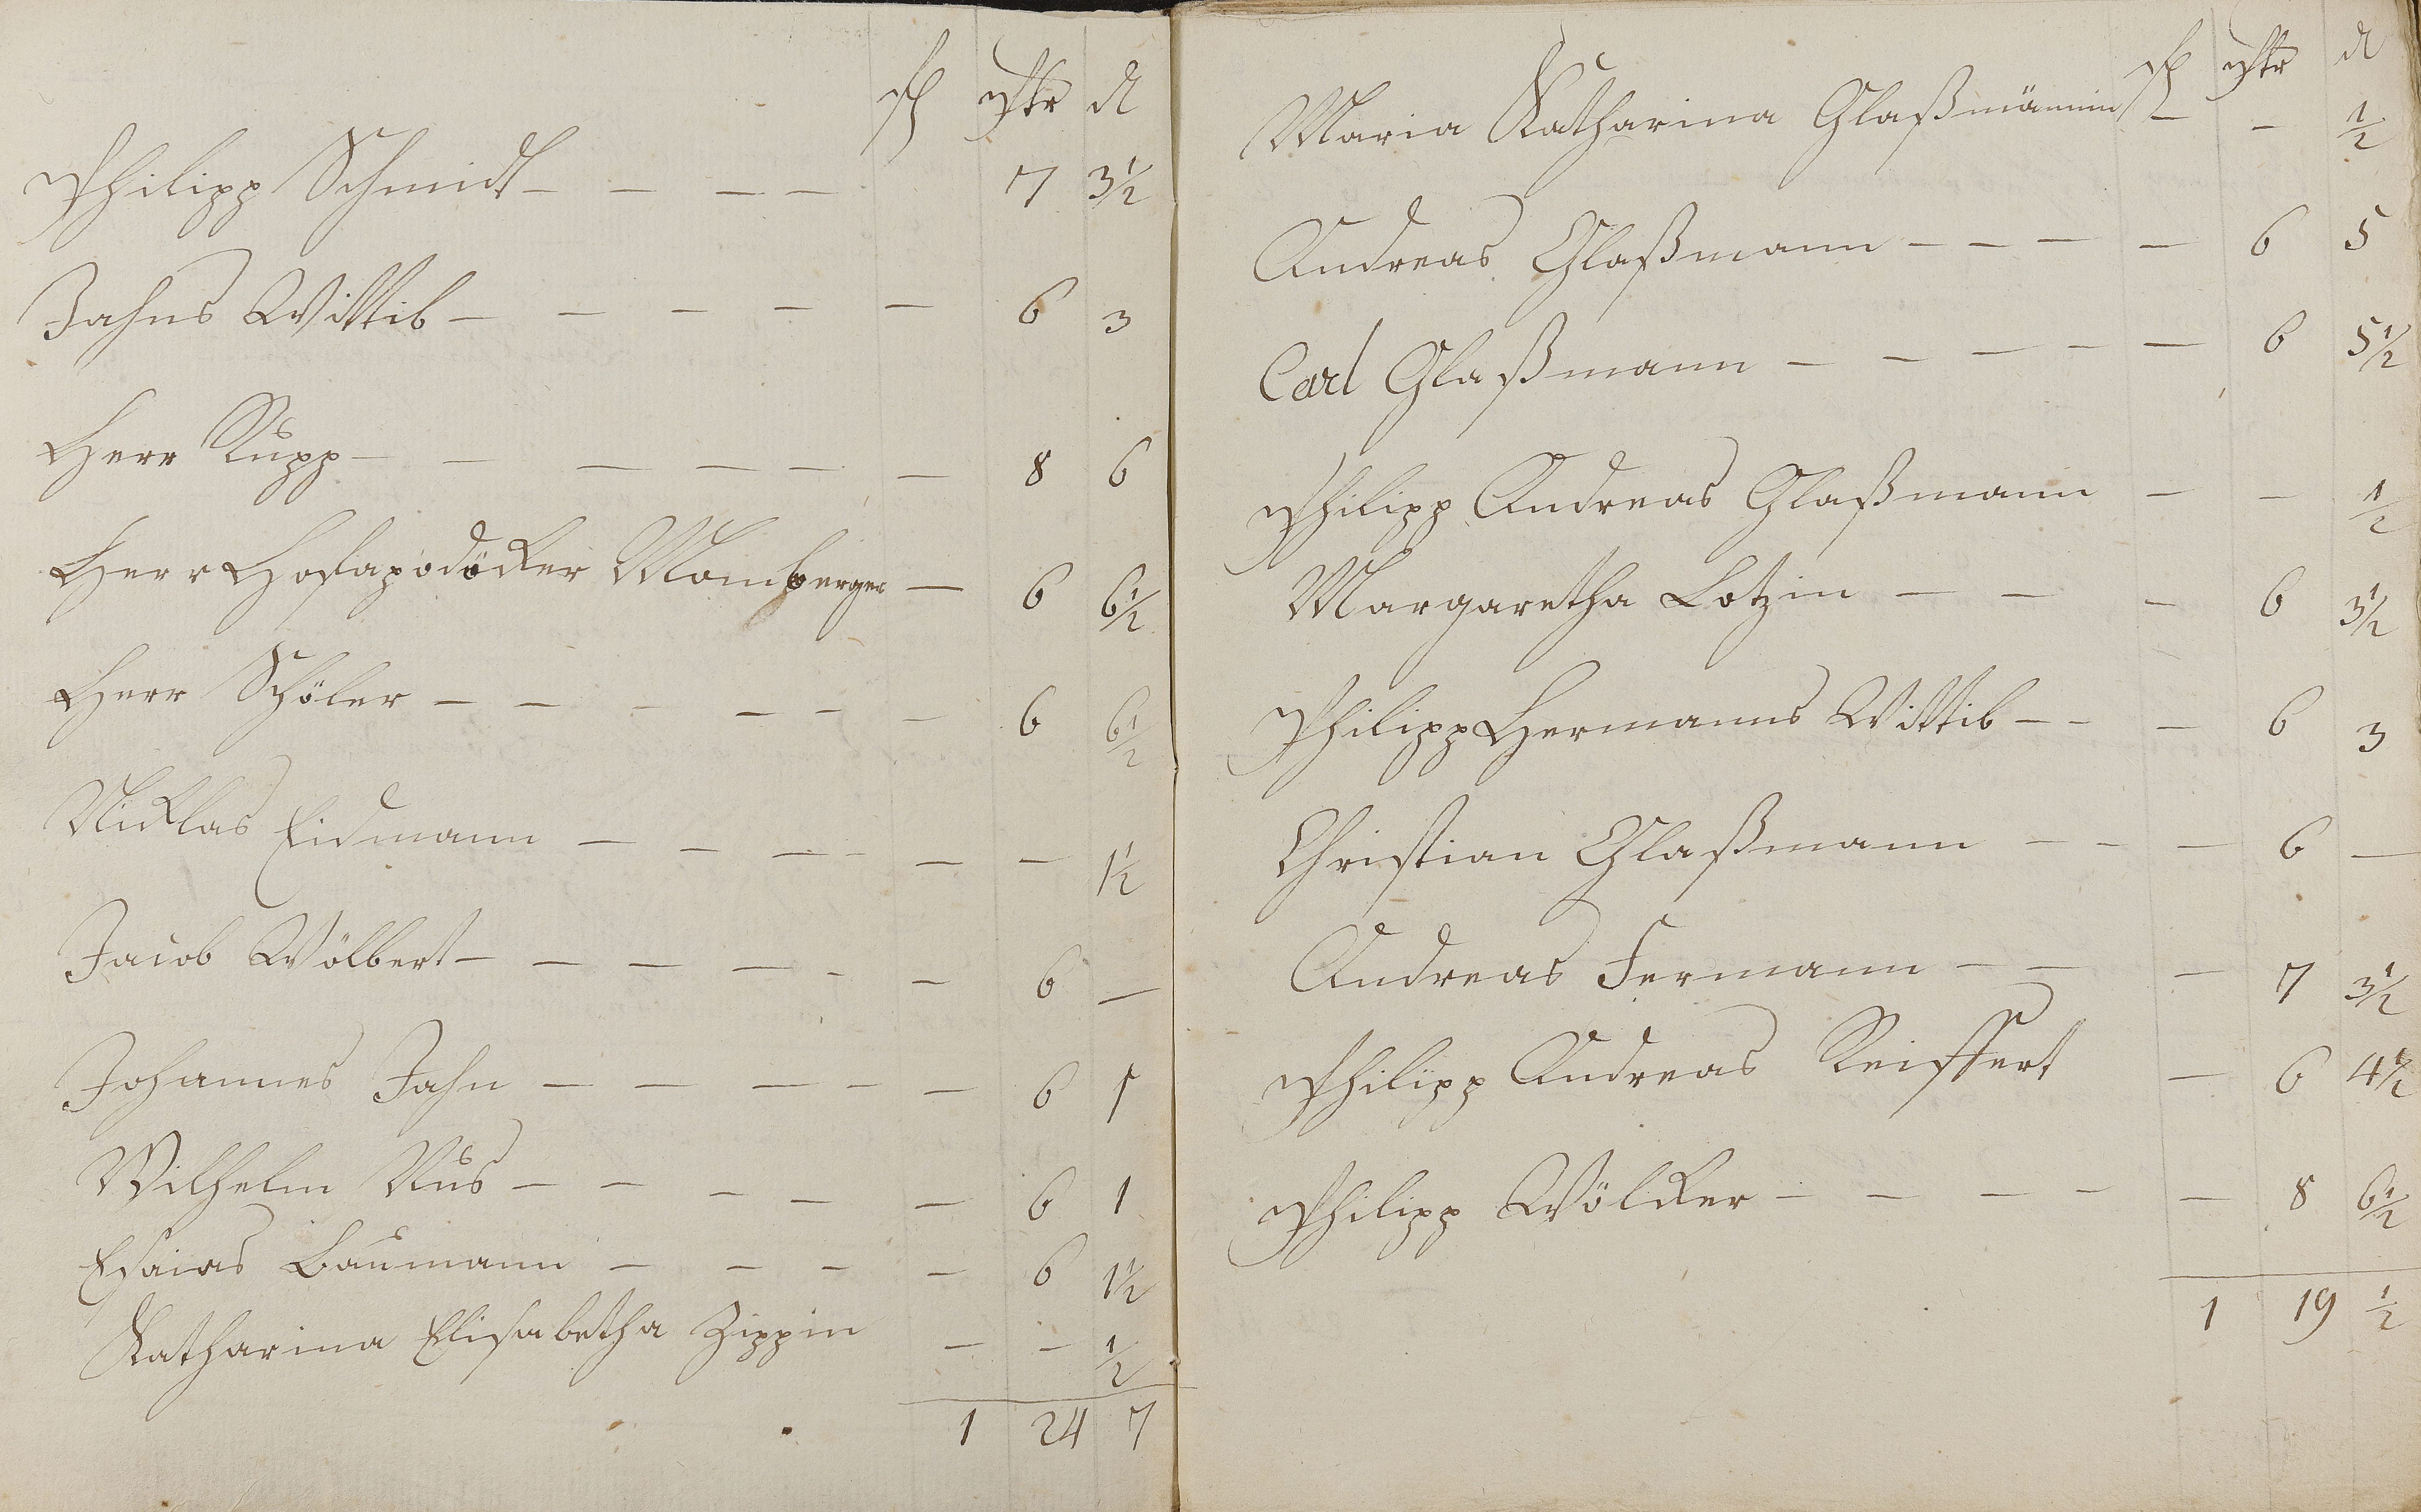 fl xtr ₰
Philipp Schmidt – – – – 7 3½
Jahns Wittib – – – – – 6 3
Herr Rupp – – – – – – 8 6
Herr Hofapodöcker Momberger – 6 6½
Herr Schöler – – – – – – 6 6½
Nicklas Eidmann – – – – – 1½
Jacob Wölbert – – – – – – 6 –
Johannes Jahn – – – – – 6 1
Wilhelm Nus – – – – – 6 1
Esaias Baumann – – – – 6 1½
Katharina Elisabetha Zippin – – ½
1 24 7
fl xtr ₰
Maria Katharina Glaßmännin – – ½
Andreas Glaßmann – – – – 6 5
Carl Glaßmann – – – – – 6 5½
Philipp Andreas Glaßmann – – ½
Margaretha Lotzin – – – 6 3½
Philipp Hermanns Wittib – – – 6 3
Christian Glaßmann – – – 6 –
Andreas Fermann – – – 7 3½
Philipp Andreas Reiffert – 6 4½
Philipp Völcker – – – – – 8 6½
1 19 ½